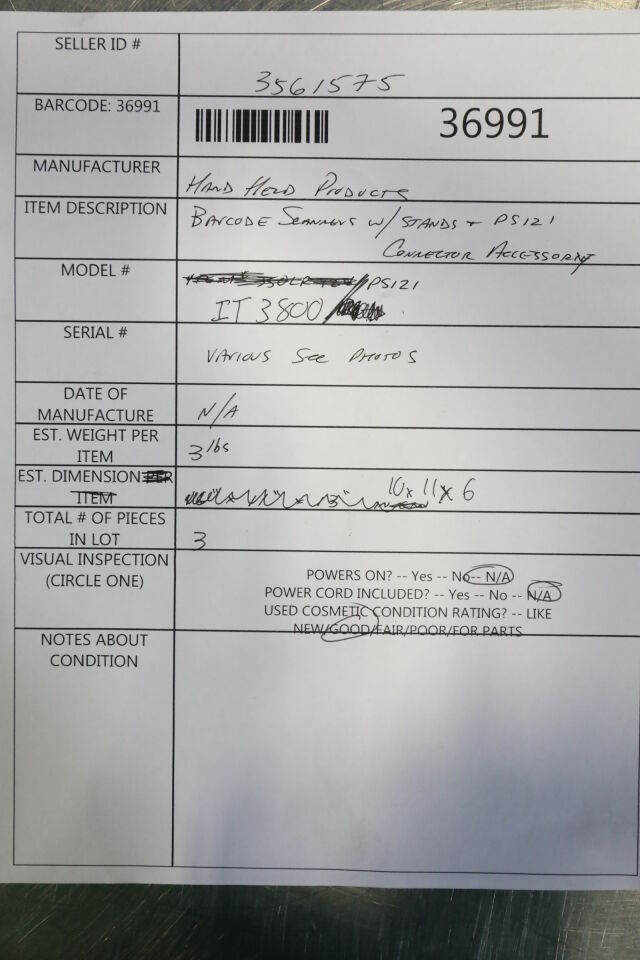 SELLER ID #
3561575
BARCODE: 36991
36991
MANUFACTURER
HAND HELD PRODUCTS
ITEM DESCRIPTION
BARCODE SCANNERS W/ STANDS + PS121
CONNECTOR ACCESSORY
MODEL #
/PS121
IT3800/
SERIAL #
VARIOUS SEE PHOTOS
DATE OF
MANUFACTURE
N/A
EST. WEIGHT PER
ITEM
3 lbs
EST. DIMENSION PER
ITEM
10 x 11 x 6
TOTAL # OF PIECES
IN LOT
3
VISUAL INSPECTION
(CIRCLE ONE)
POWERS ON? -- Yes -- No -- N/A
POWER CORD INCLUDED? -- Yes -- No -- N/A
USED COSMETIC CONDITION RATING? -- LIKE
NEW/GOOD/FAIR/POOR/FOR PARTS
NOTES ABOUT
CONDITION